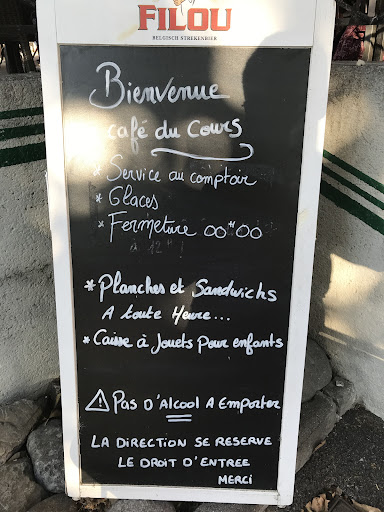 FILOU
BELGISCH STREKENBIER
Bienvenue
café du Cours
* Service au comptoir
* Glaces
* Fermeture 00H00
* Planches et Sandwichs
A toute Heure...
* Caisse à Jouets Pour enfants
⚠ Pas D'Alcool A Emporter
LA DIRECTION SE RESERVE
LE DROIT D'ENTREE
MERCI